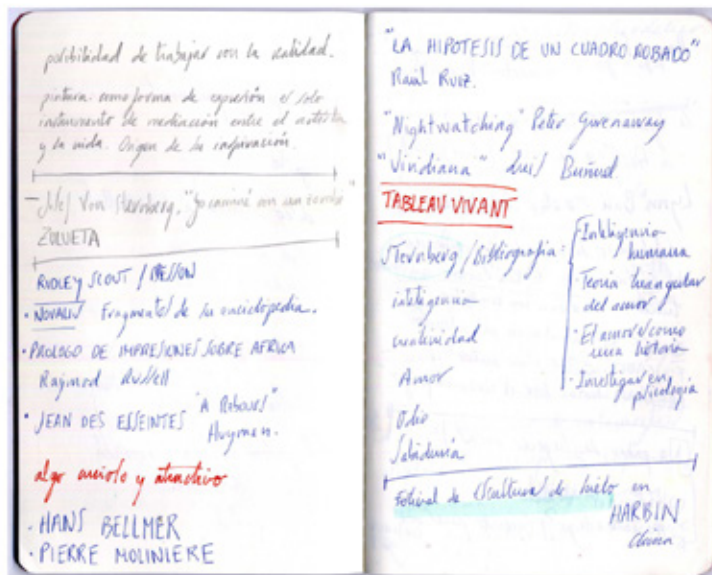 posibilidad de trabajar con la realidad.
pintura como forma de expresión es solo
instrumento de mediación entre el artista
y la vida. Origen de la inspiración.
Von Sternberg. "Yo caminé con un zombie"
ZULUETA
RIDLEY SCOUT / BESSON
· NOVALIS Fragmentos de su enciclopedia.
· PROLOGO DE IMPRESIONES SOBRE AFRICA
Raymod Russell
· JEAN DES ESSEINTES "A Rebours"
Huysmen.
algo ocioso y atractivo
· HANS BELLMER
· PIERRE MOLINIERE
"LA HIPOTESIS DE UN CUADRO ROBADO"
Raúl Ruiz.
"Nightwatching" Peter Greenaway
"Viridiana" Luis Buñuel
TABLEAU VIVANT
Sternberg / Bibliografía:
· Inteligencia
humana
· Teoría triangular
del amor
· El amor como
una historia
· Investigar en
psicología
inteligencia
creatividad
Amor
Odio
Sabiduría
Festival de escultura de hielo en
HARBIN
China